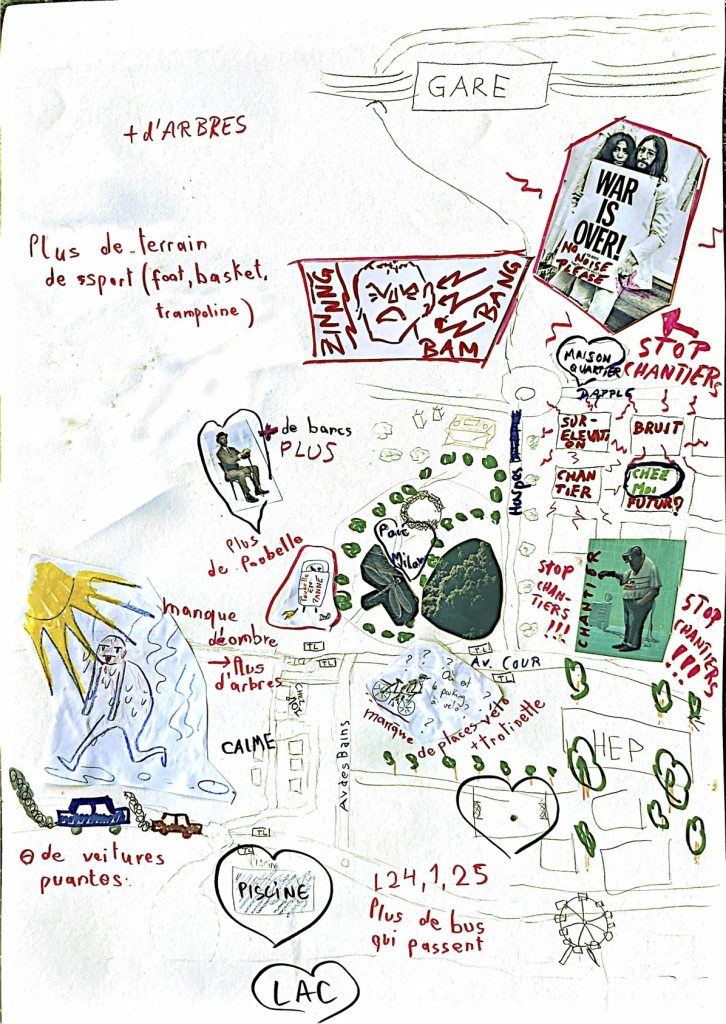 GARE
+ d'ARBRES
WAR
IS
OVER!
NO
NOISE
PLEASE
Plus de terrain
de sport (foot, basket,
trampoline)
ZINNNG
BANG
BAM
STOP
CHANTIERS
MAISON
QUARTIER
DAPPLE
SUR-
ELEVATI
ON
BRUIT
CHAN
TIER
CHEZ
MOI
FUTUR?
Harpes
+ de bancs
PLUS
Parc
Milan
plus
de Poubelle
Poubelle
EN
PANNE
STOP
CHAN-
TIERS
!!!
CHANTIER
STOP
CHANTIERS
!!!
manque
d'ombre
→ Plus
d'arbres
TL
TL
TL
TL
AV. COUR
? ? ? ? ? ?
Où est
le parking
à vélo?
manque
de places vélo
+ trotinette
CHEZ
MOI
CALME
Av des Bains
HEP
⊖ de voitures
puantes.
TL
TL
Piscine
PISCINE
L24, 1, 25
Plus de bus
qui passent
LAC